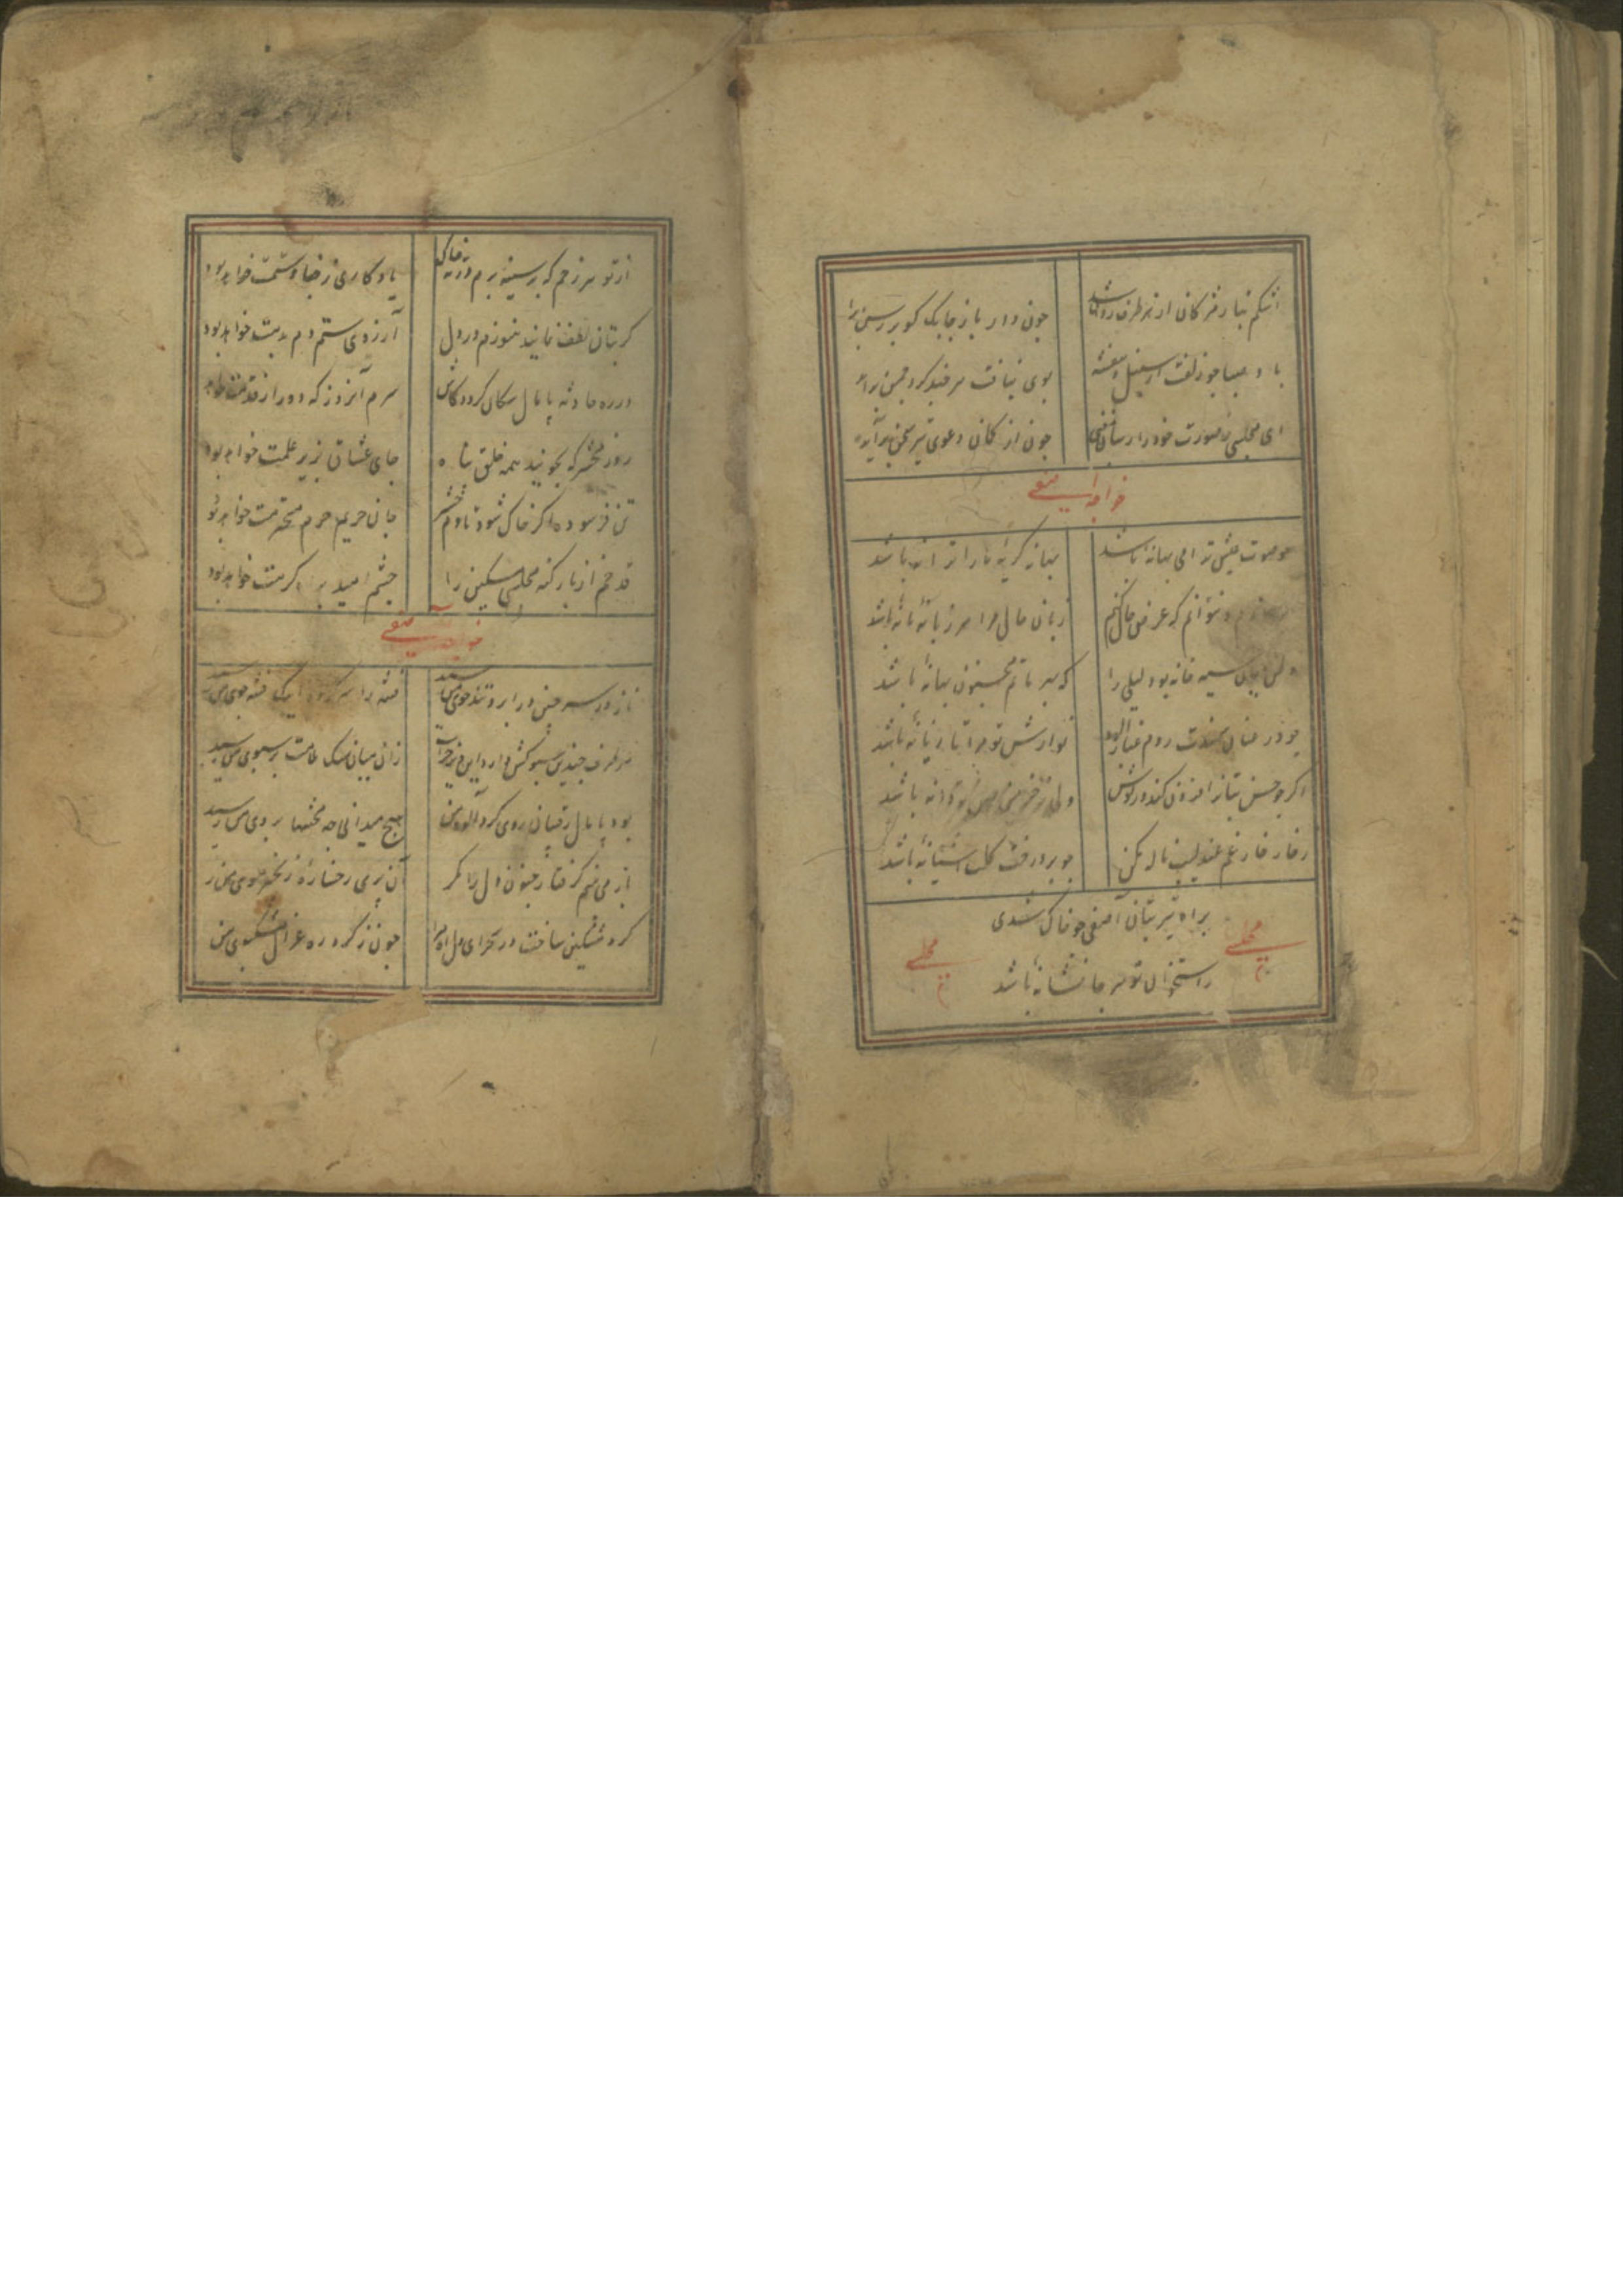 اشکم بنا رمژکان از هر طرف روان شد چون دار باز چابک کو بر رسن برا
باد صبا چو زلفت از سنبل و بنفشه بوی نیافت هر چند کرد چمن برآ
ای مجلسی بصورت خود را رسان چون از کمان دعوی تیر سخن برآید
خواجه آصفی
چو صوت عیش ترا می بهانه باشد بهانه کریه مارا ترانه باشد
نتوانم که عرض حال کنم زبان حال مرا هر زبانه باشد
سیه خانه بود لیلی را که بهر ماتم مجنون بهانه باشد
چو در عنان سمندت روم نوازش تو مرا تازیانه باشد
اکر چو حسن بتانرا فزون کند در کوش دانه باشد
ز خار خار غم عندلیب ناله مکن چو بر درخت کل آشیانه باشد
براه تیر بتان آصفی چو خاک شدی
مجلسی
مجلسی
ز استخوان تو هر جا نشانه باشد
از تو هر زخم که بر سینه برم در ته خاک یادکاری ز جفا و ستمت خواهد بود
کر بتان لطف نمایند هنوزم در دل آرزوی ستم دم بدمت خواهد بود
در ره حادثه پامال سکان کردد کاش سرم آنروز که دور از قدمت خواهد
روز محشر که بجویند همه خلق پناه جای عشاق بزیر علمت خواهد بود
تن فرسوده اکر خاک شود تا دم حشر جان حریم حرم محترمت خواهد بود
قد خم از بار کنه مجلسی مسکین را چشم امید براه کرمت خواهد بود
خواجه آصفی
ناز در سر چین در ابرو تندخوی من رسید فتنه را سر کرده اینک فتنه جوی من رسید
هر طرف چندین سبوکش دارد این دیر خراب زان میان سنک ملامت بر سبوی من رسید
بود پامال رقیبان روی کرد آلود من هیچ میدانی چه محنتها بروی من رسید
باز می بینم کرفتار جنون دل را مکر آن پری رخساره زنجیر موی من رسید
کرد مشکین ساخت در صحرای دل آه مرا چون ز کرد ره غزال مشکبوی من